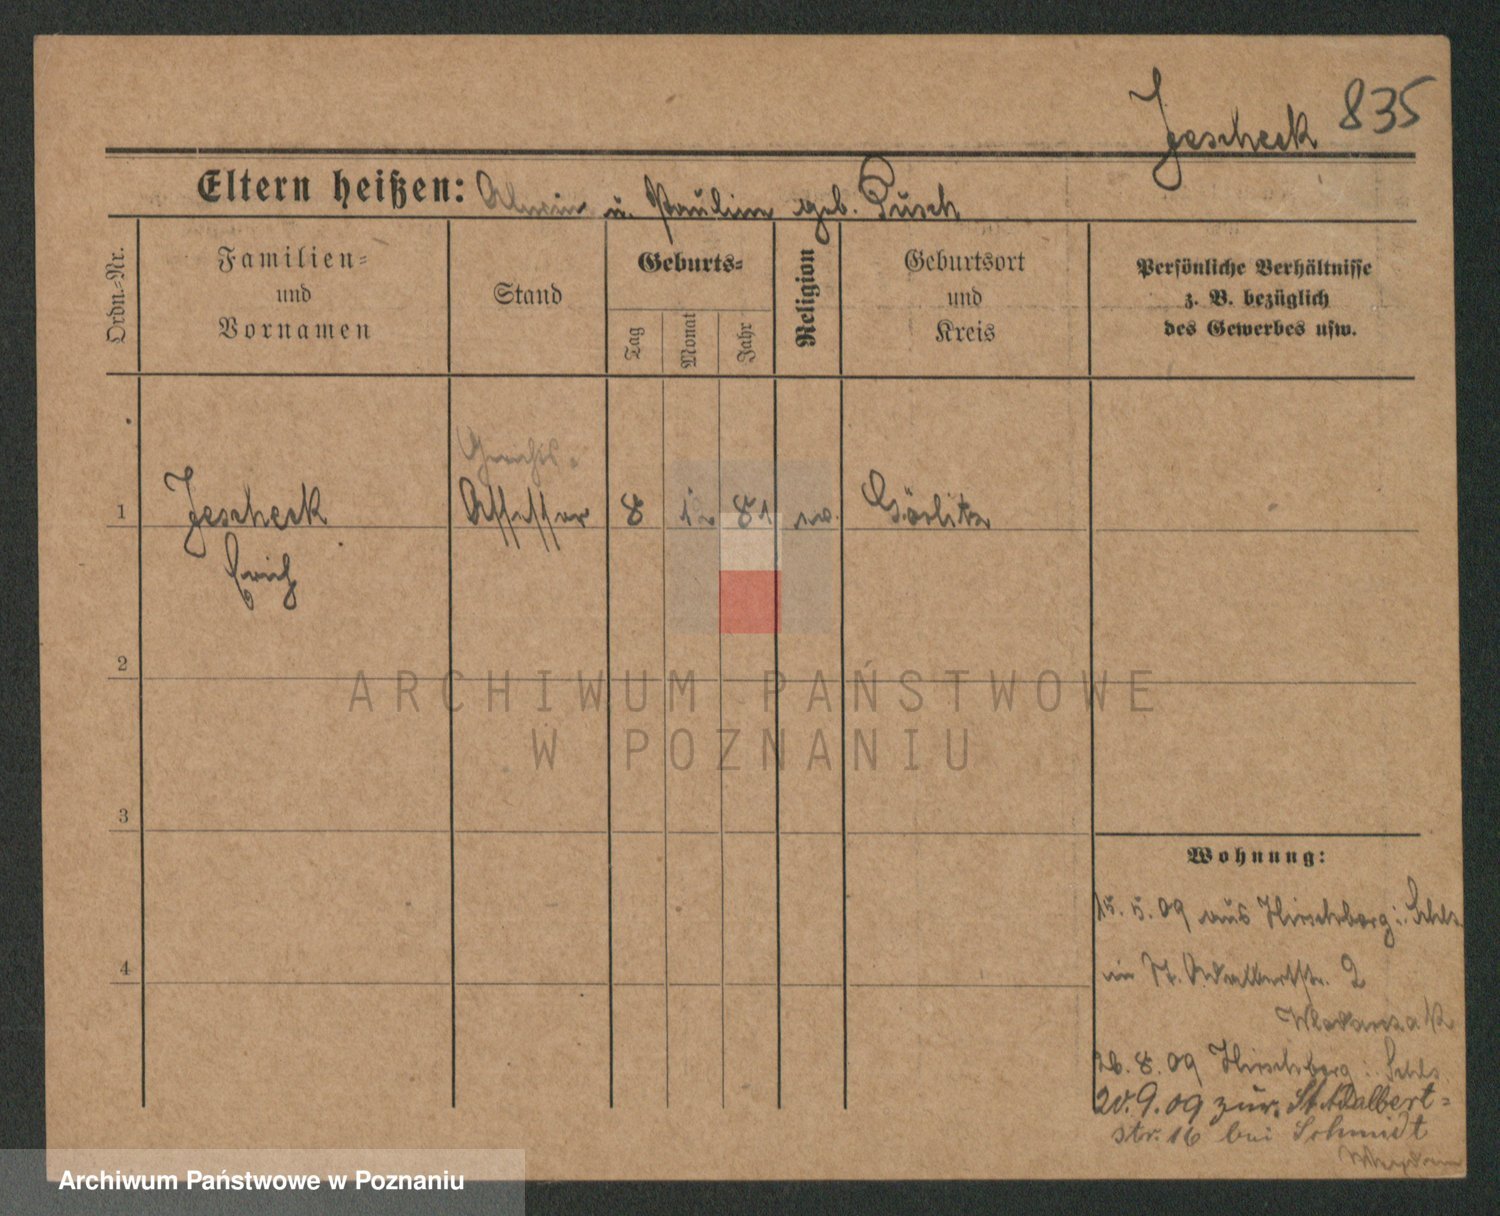 Jescheck 835
Eltern heißen: Alwin u. Pauline geb. Pusch
Ordn.-Nr.
Familien-
und
Vornamen
Stand
Geburts-
Tag
Monat
Jahr
Religion
Geburtsort
und
Kreis
Persönliche Verhältnisse
z. B. bezüglich
des Gewerbes usw.
Gerichts-
1 Jescheck Assessor 8 12 81 ev. Görlitz
Erich
2
ARCHIWUM PAŃSTWOWE
W POZNANIU
3
Wohnung:
15. 5. 09 aus Hirschberg i. Schls.
in St. Adalbertstr. 2
26. 8. 09 Hirschberg i. Schls.
20. 9. 09 zur. St. Adalbert-
str. 16 bei Schmidt
4
Archiwum Państwowe w Poznaniu